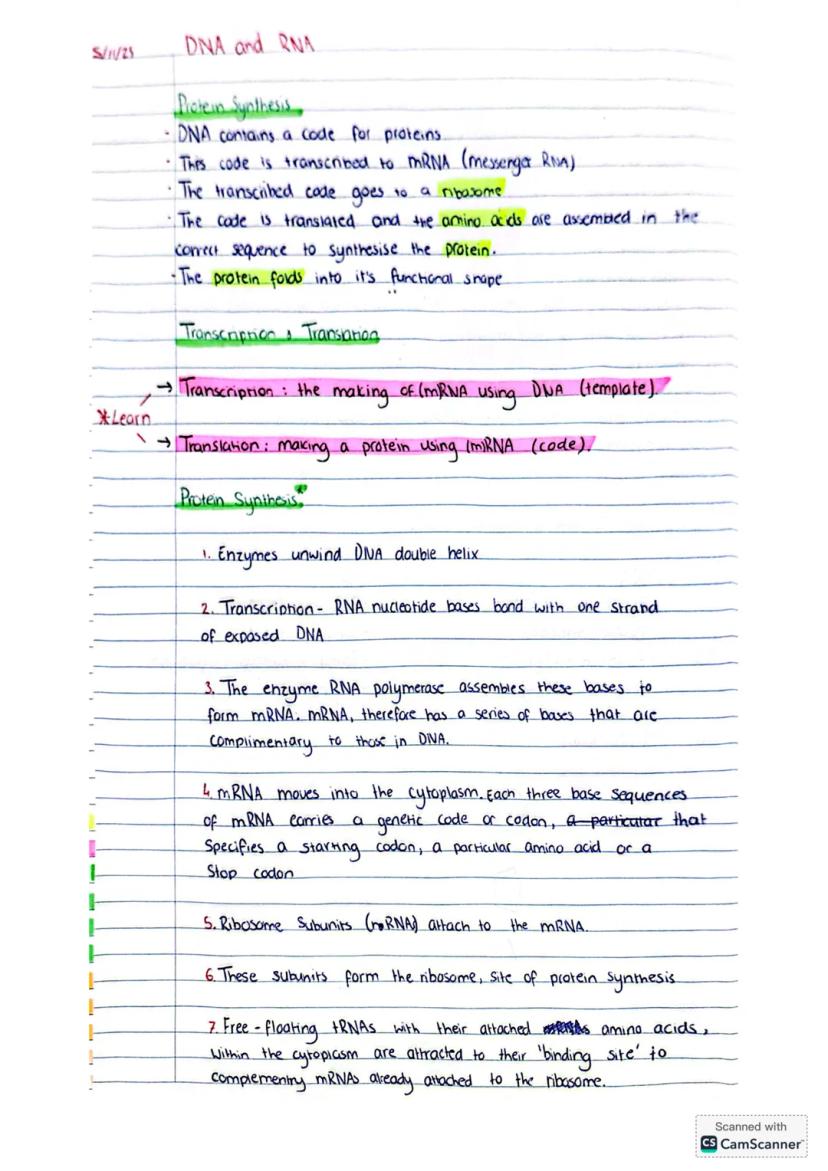 5/11/25 DNA and RNA
Protein Synthesis
· DNA contains a code for proteins
· This code is transcribed to mRNA (messenger RNA)
· The transcribed code goes to a ribosome
· The code is translated and the amino acids are assembled in the
correct sequence to synthesise the protein.
· The protein folds into it's functional shape
Transcription & Translation
→ Transcription : the making of (m)RNA using DNA (template).
*Learn
→ Translation : making a protein using (m)RNA (code).
Protein Synthesis*
1. Enzymes unwind DNA double helix
2. Transcription - RNA nucleotide bases bond with one strand
of exposed DNA
3. The enzyme RNA polymerase assembles these bases to
form mRNA. mRNA, therefore has a series of bases that are
complimentary to those in DNA.
4. mRNA moves into the cytoplasm. Each three base sequences
of mRNA carries a genetic code or codon, a particular that
Specifies a starting codon, a particular amino acid or a
Stop codon
5. Ribosome Subunits (rRNA) attach to the mRNA.
6. These subunits form the ribosome, site of protein synthesis
7. Free-floating tRNAs with their attached amino acids,
within the cytoplasm are attracted to their 'binding site' to
complementry mRNAs already attached to the ribosome.
Scanned with
CS CamScanner